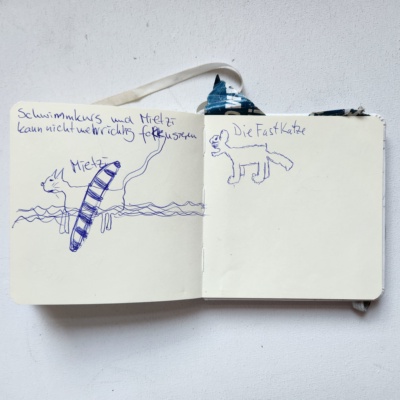 Schwimmkurs und Mietzi
kann nicht mehr richtig fokussieren
Mietzi
Die Fastkatze